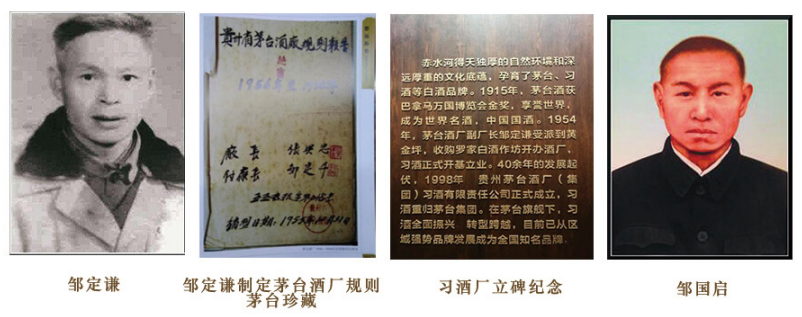 贵州省茅台酒厂规则报告
厂长
付厂长 邹定千
赤水河得天独厚的自然环境和深
远厚重的文化底蕴,孕育了茅台、习
酒等白酒品牌。1915年,茅台酒获
巴拿马万国博览会金奖,享誉世界,
成为世界名酒,中国国酒。1954
年,茅台酒厂副厂长邹定谦受派到黄
金坪,收购罗家白酒作坊开办酒厂,
习酒正式开基立业。40余年的发展起
伏,1998年 贵州茅台酒厂(集
团)习酒有限责任公司正式成立,习
酒重归茅台集团。在茅台旗舰下,习
酒全面振兴 转型跨越,目前已从区
域强势品牌发展成为全国知名品牌
邹定谦
邹定谦制定茅台酒厂规则
茅台珍藏
习酒厂立碑纪念
邹国启